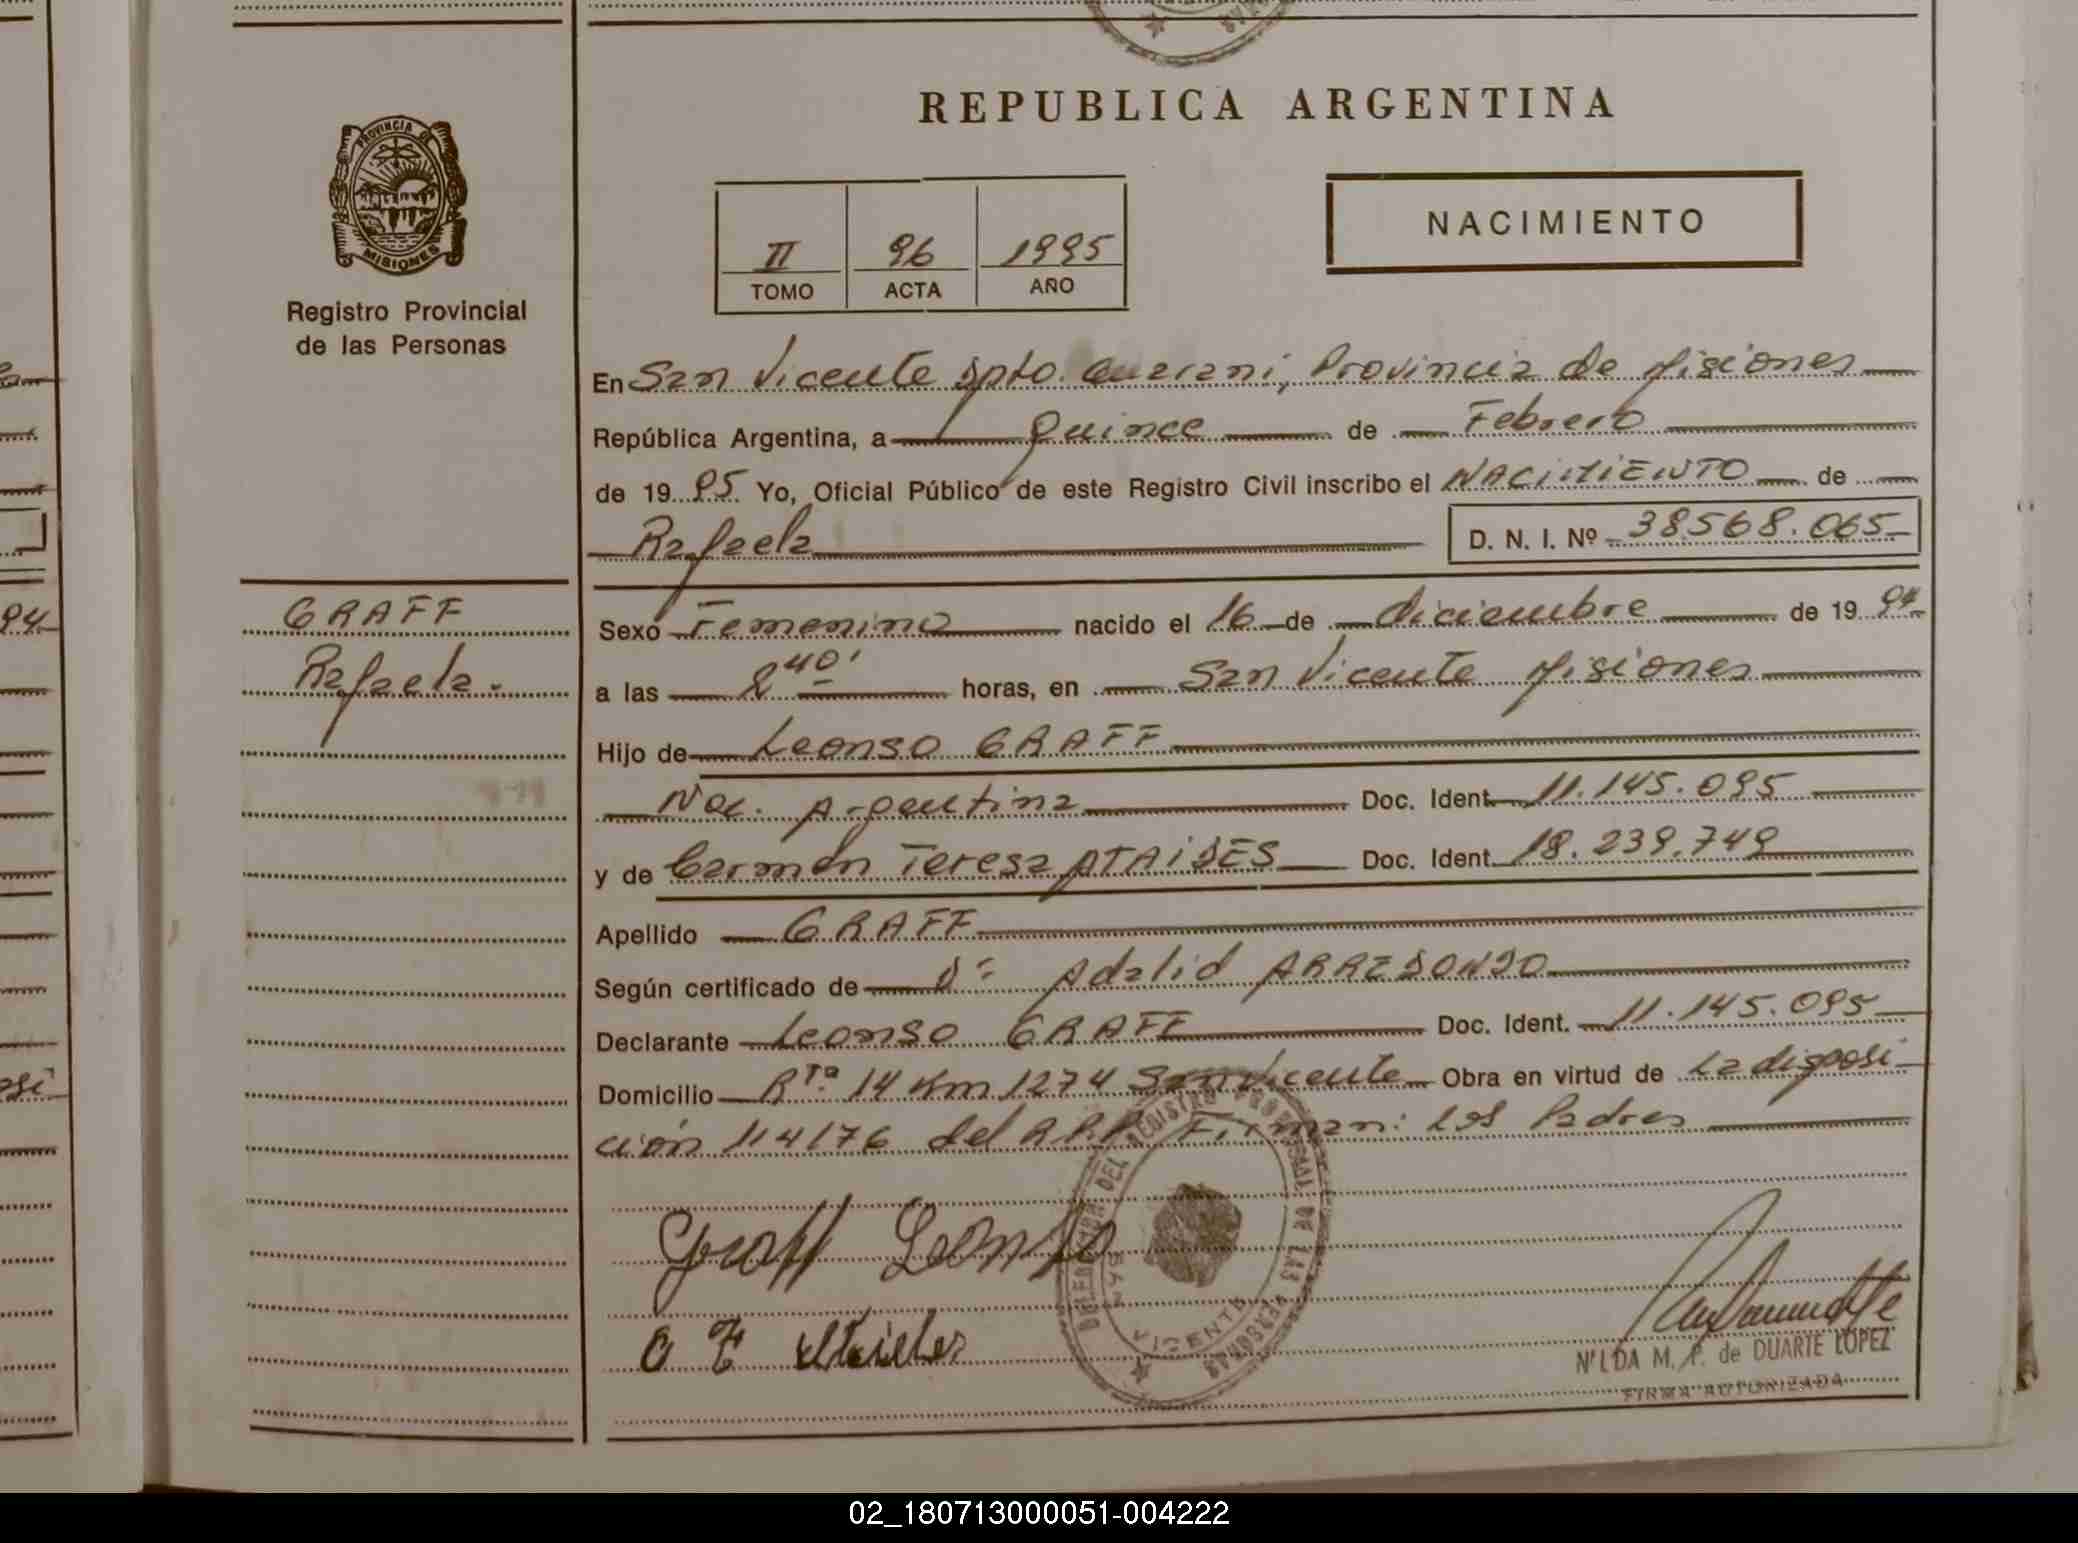 REPUBLICA ARGENTINA
PROVINCIA DE
MISIONES
Registro Provincial
de las Personas
II 96 1995
TOMO ACTA AÑO
NACIMIENTO
En San Vicente Dpto. Guarani, Provincia de Misiones
República Argentina, a Quince de Febrero
de 19 95 Yo, Oficial Público de este Registro Civil inscribo el NACIMIENTO de
Rafaela D. N. I. Nº 38.568.065
GRAFF
Rafaela.
Sexo Femenino nacido el 16 de diciembre de 19 94
a las 8 40' horas, en San Vicente Misiones
Hijo de Leonso GRAFF
Nac. Argentina Doc. Ident. 11.145.095
y de Carmen Teresa ATAIDES Doc. Ident. 18.239.749
Apellido GRAFF
Según certificado de Dr Adalid ARREDONDO
Declarante Leonso GRAFF Doc. Ident. 11.145.095
Domicilio Rta. 14 Km 1274 San Vicente Obra en virtud de La disposi
ción 114/76 del R.P.P. Firman: los Padres
Graff Leonso
NILDA M. P. de DUARTE LOPEZ
FIRMA AUTORIZADA
02_180713000051-004222